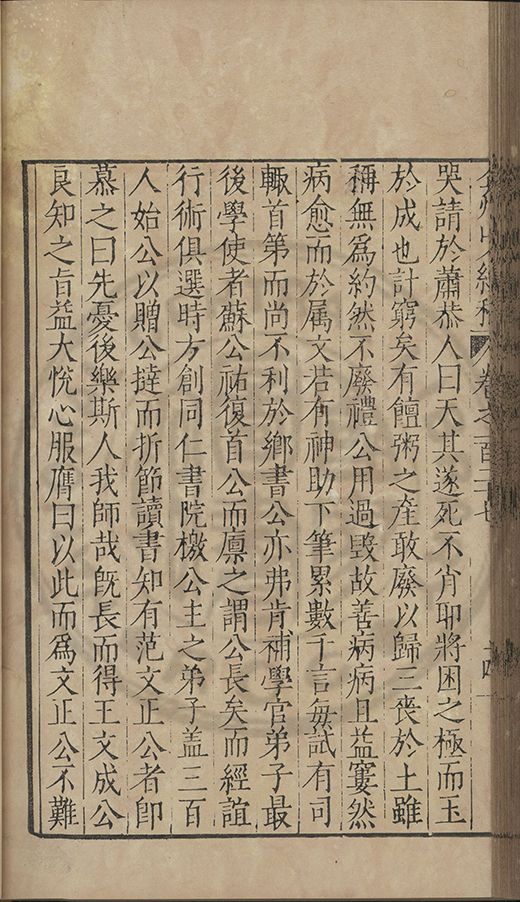 卷之
哭請於蕭恭人曰天其遂死不肖耶將困之極而玉
於成也計窮矣有饘粥之產敢廢以歸三喪於土雖
稱無爲約然不廢禮公用過毀故善病病且益窶然
病愈而於属文若有神助下筆累數千言每試有司
輙首第而尚不利於鄉書公亦弗肯補學官弟子最
後學使者蘇公祐復首公而廩之謂公長矣而經誼
行術俱選時方創同仁書院檄公主之弟子盖三百
人始公以贈公撻而折節讀書知有范文正公者卽
慕之曰先憂後樂斯人我師哉旣長而得王文成公
良知之㫖益大悅心服膺曰以此而爲文正公不難